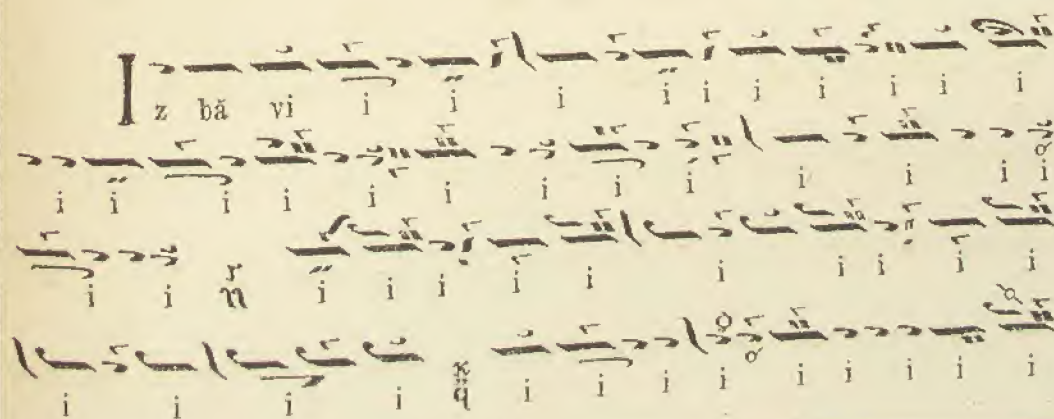 Iz bă vi i i i i i i i i i i
i i i i i i i i i i i i
i i i i i i i i i i i
i i i i i i i i i i i i i